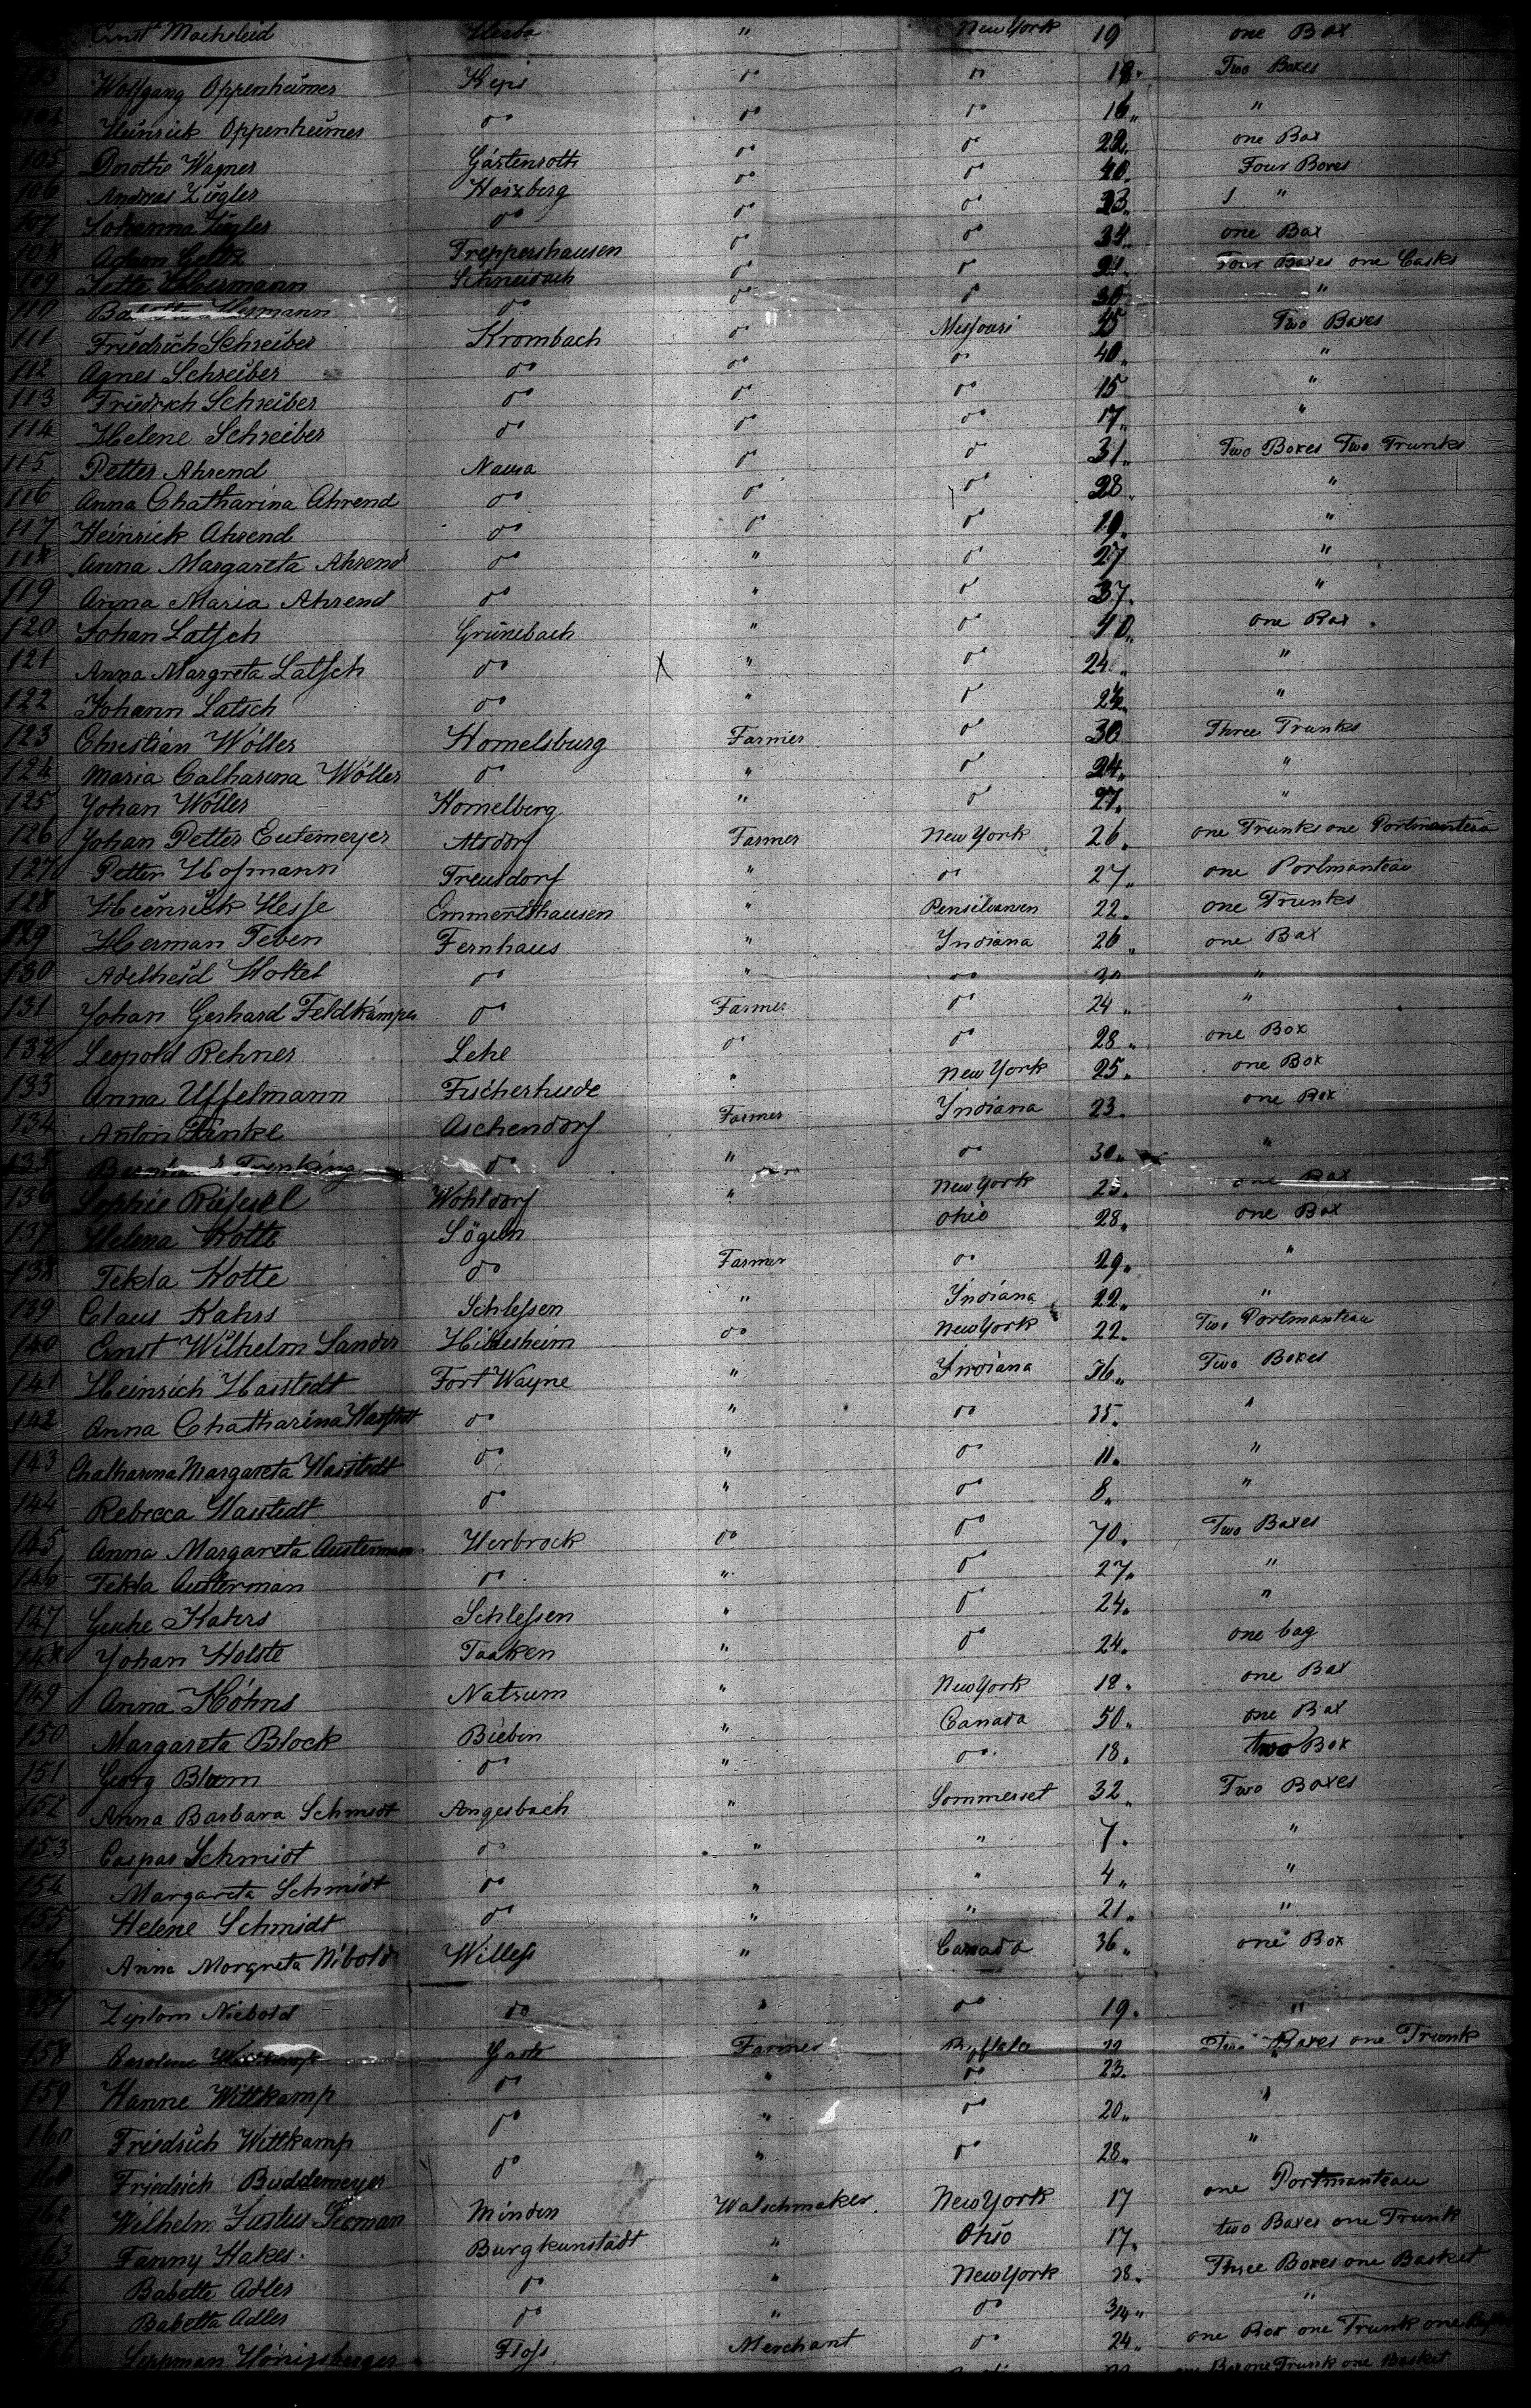 Ernst Macheleid " New York 19 one Box
103 Wolfgang Oppenheimer do do Two Boxes
104 Heinrich Oppenheimer do do do 16 "
105 Dorothe Wagner Gärtenroth do do 22 one Box
106 Andreas Zügler Harzberg do do 40 Four Boxes
107 Johanna Zügler do do do 23 "
108 Adam Treppershausen do do 34 one Box
109 Jette Schneidach do do 21 Four Boxes one Casks
110 do do do 30 "
111 Friedrich Schreiber Krombach do Missouri 45 Two Boxes
112 Agnes Schreiber do do do 40 "
113 Friedrich Schreiber do do do 15 "
114 Helene Schreiber do do do 17 "
115 Petter Ahrend Nausa do do 31 Two Boxes Two Trunks
116 Anna Chatharina Ahrend do do do 28 "
117 Heinrich Ahrend do do do 19 "
118 Anna Margareta Ahrend do " do 27 "
119 Anna Maria Ahrend do " do 37 "
120 Johan Latsch Grünebach " do 40 one Box
121 Anna Margreta Latsch do X " do 24 "
122 Johann Latsch do " do "
123 Christian Wöller Homelsburg Farmer do 30 Three Trunks
124 Maria Catharina Wöller do " do 24 "
125 Johan Wöller Homelberg " do 27 "
126 Johan Petter Eutemeyer Atsdorf Farmer New York 26 one Trunks one Portmanteau
127 Petter Hofmann Treusdorf " do 27 one Portmanteau
128 Heinrich Hesse Emmerishausen " Pensilvanien 22 one Trunks
129 Herman Teben Fernhaus " Indiana 26 one Box
130 Adelheid Holtel do " do 30 "
131 Johan Gerhard Feldkämper do Farmer do 24 "
132 Leopold Rehner Lehe do do 28 one Box
133 Anna Uffelmann Fischerhude " New York 25 one Box
134 Anton Finke Aschendorf Farmer Indiana 23 one Box
135 do " do 30 "
136 Sophie Wohldorf " New York 25 one Box
137 Helena Kotte Sögeln Ohio 28 one Box
138 Tekla Kotte do Farmer do 29 "
139 Claus Kahrs Schlessen " Indiana 22 "
140 Ernst Wilhelm Sander Hildesheim do New York 22 Two Portmanteau
141 Heinrich Hasstedt Fort Wayne " Indiana 36 Two Boxes
142 Anna Chatharina Hasstedt do " do 35 "
143 Chatharina Margareta Hasstedt do " do 11 "
144 Rebecca Hasstedt do " do 8 "
145 Anna Margareta Austerman Herbrock do do 70 Two Boxes
146 Tekla Austerman do " do 27 "
147 Gesche Kahrs Schlessen " do 24 "
148 Johan Holste Taaken " do 24 one bag
149 Anna Höhns Natrum " New York 18 one Box
150 Margareta Block Bieben " Canada 50 one Box
151 Georg do " do 18 two Box
152 Anna Barbara Schmidt Angesbach " Sommerset 32 Two Boxes
153 Caspar Schmidt do " " 7 "
154 Margareta Schmidt do " " 4 "
155 Helene Schmidt do " " 21 "
156 Anna Morgreta Nibold Willess " Canada 36 one Box
157 Niebold do " do 19 "
158 Caroline Farmer Buffalo 22 Two Boxes one Trunk
159 Hanne Wittkamp do " do 23 "
160 Friedrich Wittkamp do " do 20 "
161 Friedrich Buddemeyer do " do 28 "
162 Wilhelm Justus Minden Watschmaker New York 17 one Portmanteau
163 Fanny Hakes Burgkunstadt " Ohio 17 two Boxes one Trunk
Babette Adler do " New York 38 Three Boxes one Basket
Babetta Adler do " do 3/4 "
Leppman Hönigsberger Floss Merchant do 24 one Box one Trunk one
one Box one Trunk one Basket